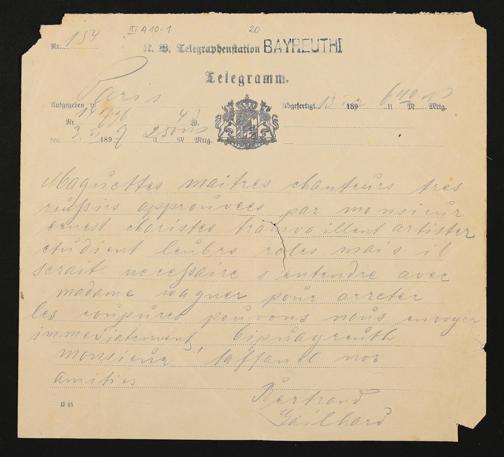 III A 10-1 20
Nr. 154 K. B. Telegraphenstation BAYREUTH
Telegramm.
Aufgegeben Paris Abgefertigt 189 640 M. Mttg.
Nr. W.
3 189 7 250 M. Mttg.
Maquettes maitres chanteurs tres
reussies approuvees par monsieur
ernest choristes travvaillent artister
etudient leubrs roles mais il
serait necessaire s entendre avec
madame wagner pour arreter
les coupures pouvons nous envoyer
immediatement bipuayreuth
monsieur taffanel nos
amities
Bertrand
Gailhard